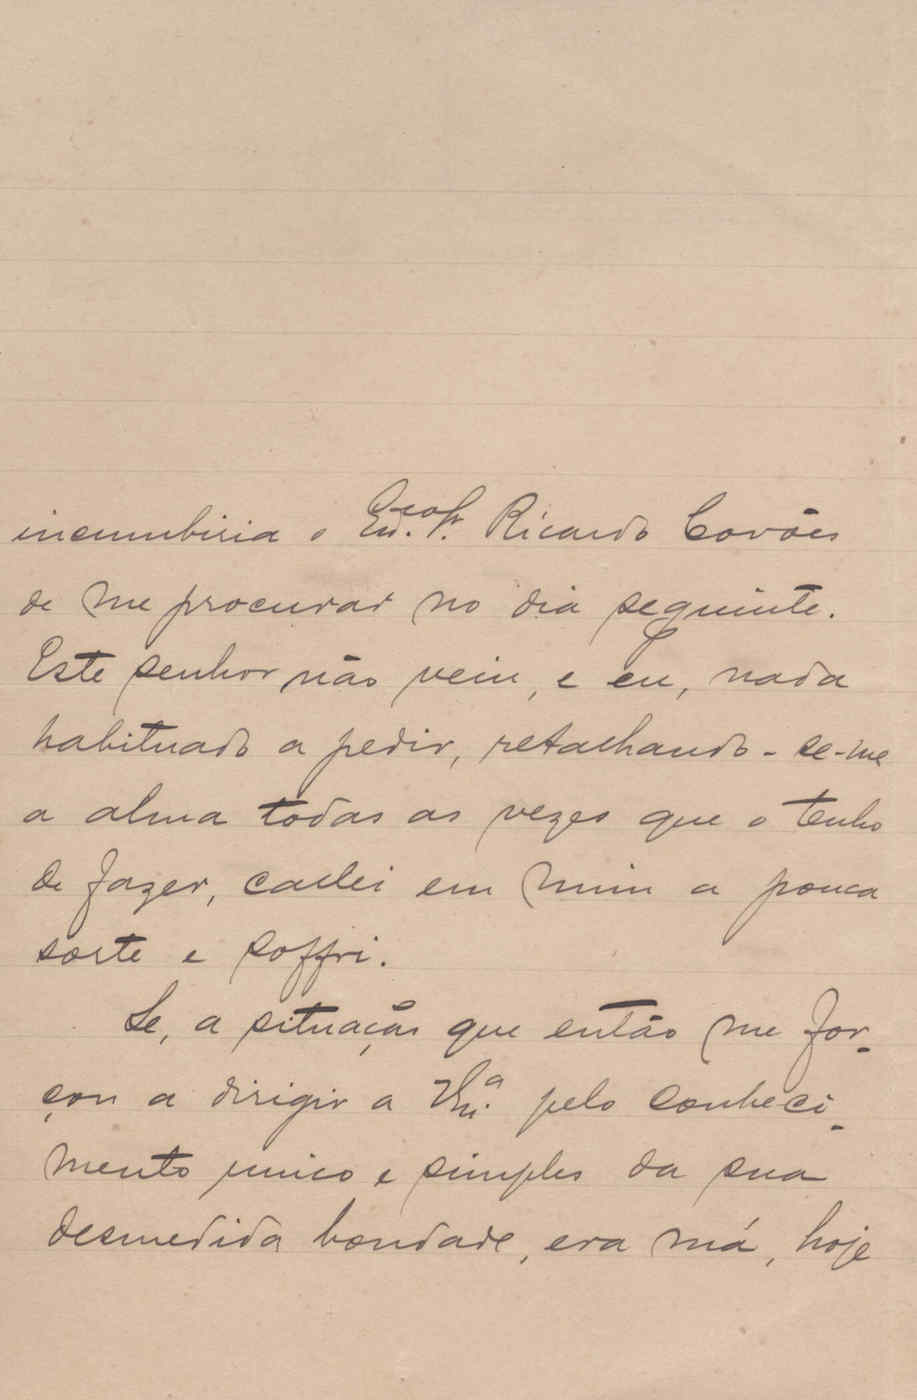 incumbiria o Ex.mo Sr. Ricardo Covões
de me procurar no dia seguinte.
Este senhor não veiu, e eu, nada
habituado a pedir, retalhando-se-me
a alma todas as vezes que o tenho
de fazer, callei em mim a pouca
sorte e soffri.
Se, a situação que então me for-
çou a dirigir a V. Ex.ª pelo conheci-
mento unico e simples da sua
desmedida bondade, era má, hoje